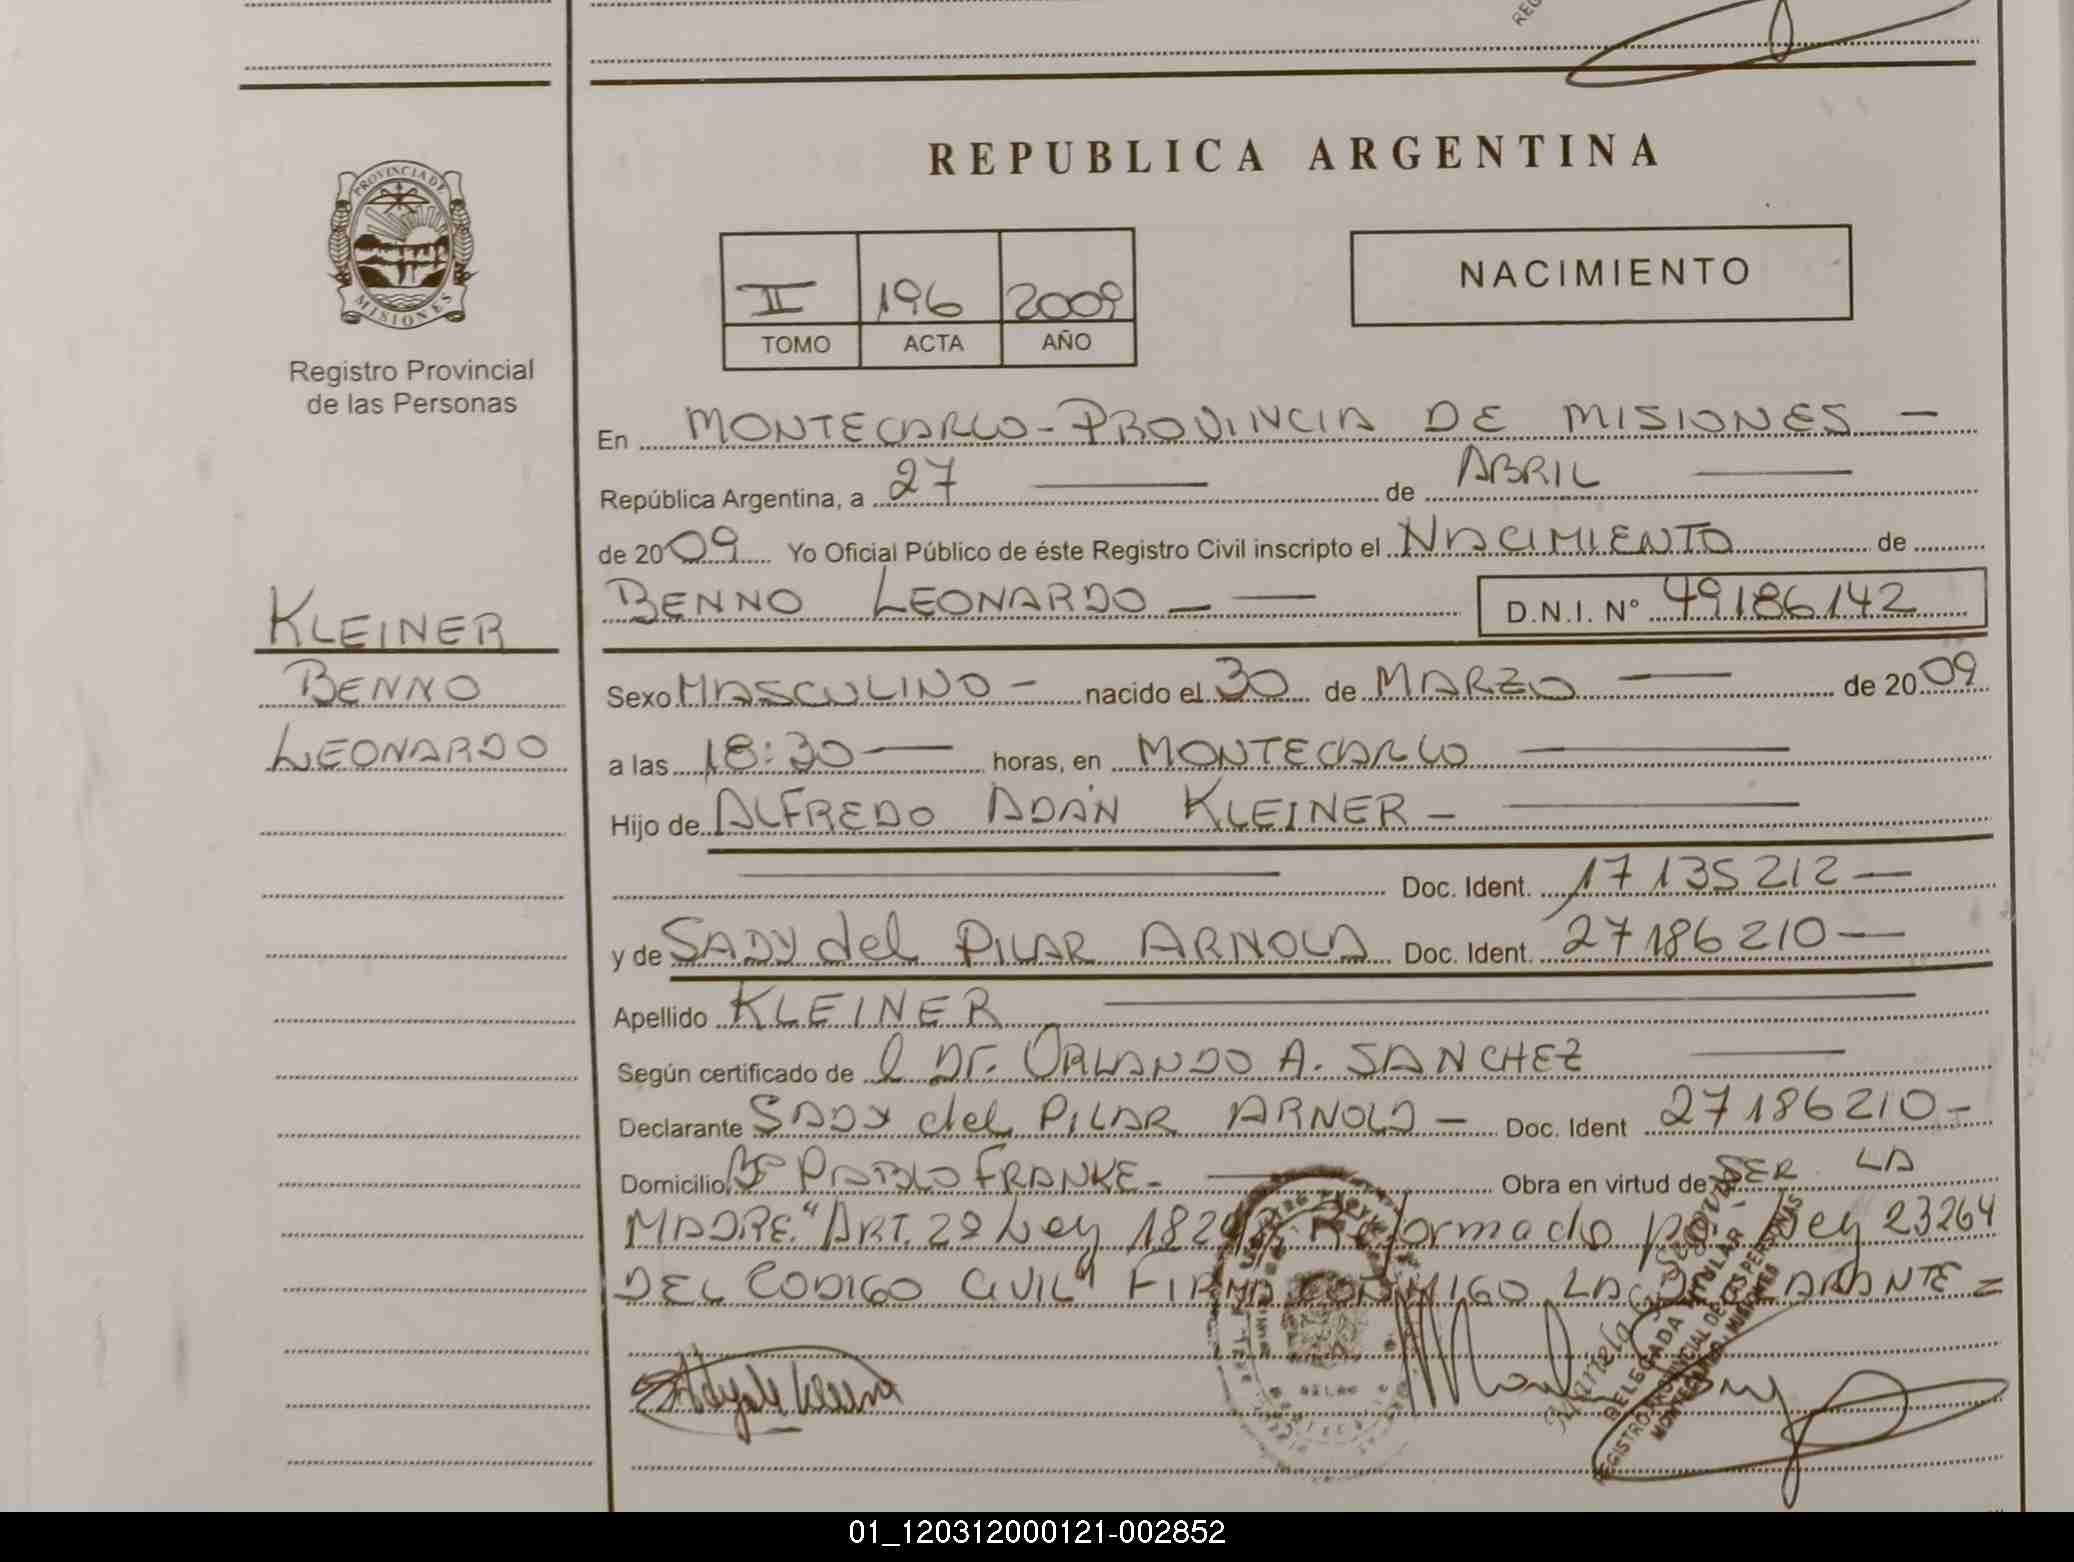 REPUBLICA ARGENTINA
PROVINCIA DE
MISIONES
Registro Provincial
de las Personas
II 196 2009
TOMO ACTA AÑO
NACIMIENTO
En MONTECARLO - PROVINCIA DE MISIONES —
República Argentina, a 27 — de ABRIL —
de 2009 Yo Oficial Público de éste Registro Civil inscripto el NACIMIENTO de
BENNO LEONARDO — — D.N.I. N° 49186142
KLEINER
BENNO
LEONARDO
Sexo MASCULINO - nacido el 30 de MARZO — de 2009
a las 18:30 — horas, en MONTECARLO —
Hijo de ALFREDO ADÁN KLEINER - —
— Doc. Ident. 17135212 —
y de SADY del PILAR ARNOLD Doc. Ident. 27186210 —
Apellido KLEINER —
Según certificado de l Dr. ORLANDO A. SANCHEZ —
Declarante SADY del PILAR ARNOLD — Doc. Ident 27186210 -
Domicilio Bº PABLO FRANKE - — Obra en virtud de SER LA
MADRE. "ART. 2º Ley 18248 Reformado por Ley 23264
DEL CODIGO CIVIL" FIRMA CONMIGO LA DECLARANTE =
DELEGADA TITULAR
REGISTRO PROVINCIAL DE LAS PERSONAS
MONTECARLO, MISIONES
01_120312000121-002852